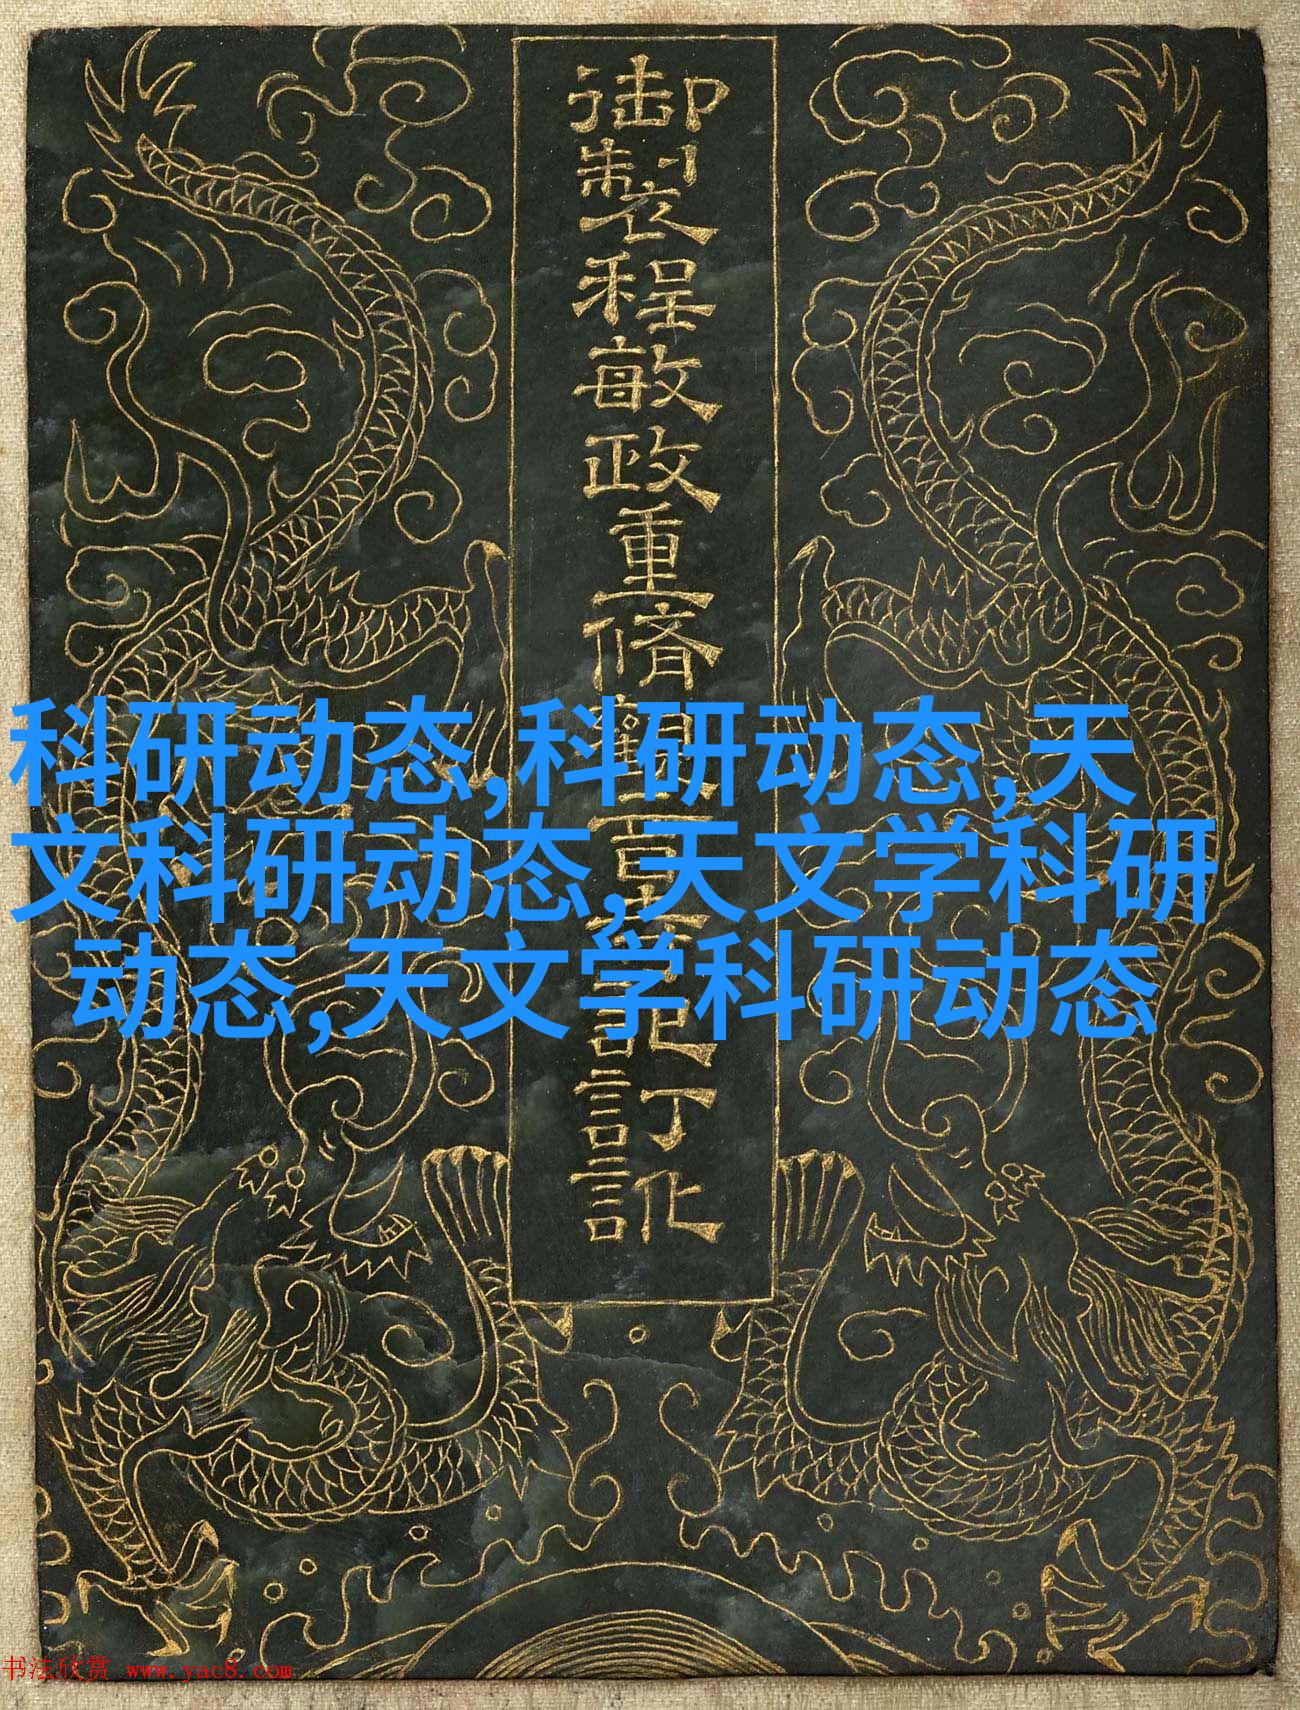 御製程敏政重脩
記訂訛
科研动态,科研动态,天
文科研动态,天文学科研
动态,天文学科研动态
书法欣赏 www.yac8.com